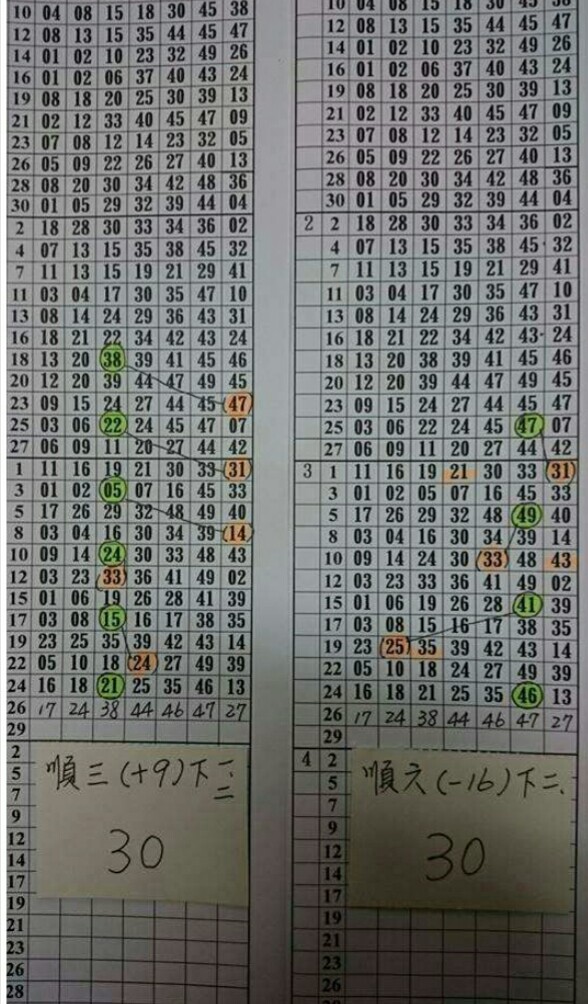 10 04 08 15 18 30 45 38
12 08 13 15 35 44 45 47
14 01 02 10 23 32 49 26
16 01 02 06 37 40 43 24
19 08 18 20 25 30 39 13
21 02 12 33 40 45 47 09
23 07 08 12 14 23 32 05
26 05 09 22 26 27 40 13
28 08 20 30 34 42 48 36
30 01 05 29 32 39 44 04
2 18 28 30 33 34 36 02
4 07 13 15 35 38 45 32
7 11 13 15 19 21 29 41
11 03 04 17 30 35 47 10
13 08 14 24 29 36 43 31
16 18 21 22 34 42 43 24
18 13 20 38 39 41 45 46
20 12 20 39 44 47 49 45
23 09 15 24 27 44 45 47
25 03 06 22 24 45 47 07
27 06 09 11 20 27 44 42
1 11 16 19 21 30 33 31
3 01 02 05 07 16 45 33
5 17 26 29 32 48 49 40
8 03 04 16 30 34 39 14
10 09 14 24 30 33 48 43
12 03 23 33 36 41 49 02
15 01 06 19 26 28 41 39
17 03 08 15 16 17 38 35
19 23 25 35 39 42 43 14
22 05 10 18 24 27 49 39
24 16 18 21 25 35 46 13
26 17 24 38 44 46 47 27
29
2
5
7
9
12
14
17
19
21
23
26
28
順三(+9)下一、二
30
10 04 08 15 18 30 45 38
12 08 13 15 35 44 45 47
14 01 02 10 23 32 49 26
16 01 02 06 37 40 43 24
19 08 18 20 25 30 39 13
21 02 12 33 40 45 47 09
23 07 08 12 14 23 32 05
26 05 09 22 26 27 40 13
28 08 20 30 34 42 48 36
30 01 05 29 32 39 44 04
2 2 18 28 30 33 34 36 02
4 07 13 15 35 38 45 32
7 11 13 15 19 21 29 41
11 03 04 17 30 35 47 10
13 08 14 24 29 36 43 31
16 18 21 22 34 42 43 24
18 13 20 38 39 41 45 46
20 12 20 39 44 47 49 45
23 09 15 24 27 44 45 47
25 03 06 22 24 45 47 07
27 06 09 11 20 27 44 42
3 1 11 16 19 21 30 33 31
3 01 02 05 07 16 45 33
5 17 26 29 32 48 49 40
8 03 04 16 30 34 39 14
10 09 14 24 30 33 48 43
12 03 23 33 36 41 49 02
15 01 06 19 26 28 41 39
17 03 08 15 16 17 38 35
19 23 25 35 39 42 43 14
22 05 10 18 24 27 49 39
24 16 18 21 25 35 46 13
26 17 24 38 44 46 47 27
29
4 2
5
7
9
12
14
17
19
21
23
26
28
順六(-16)下二、
30